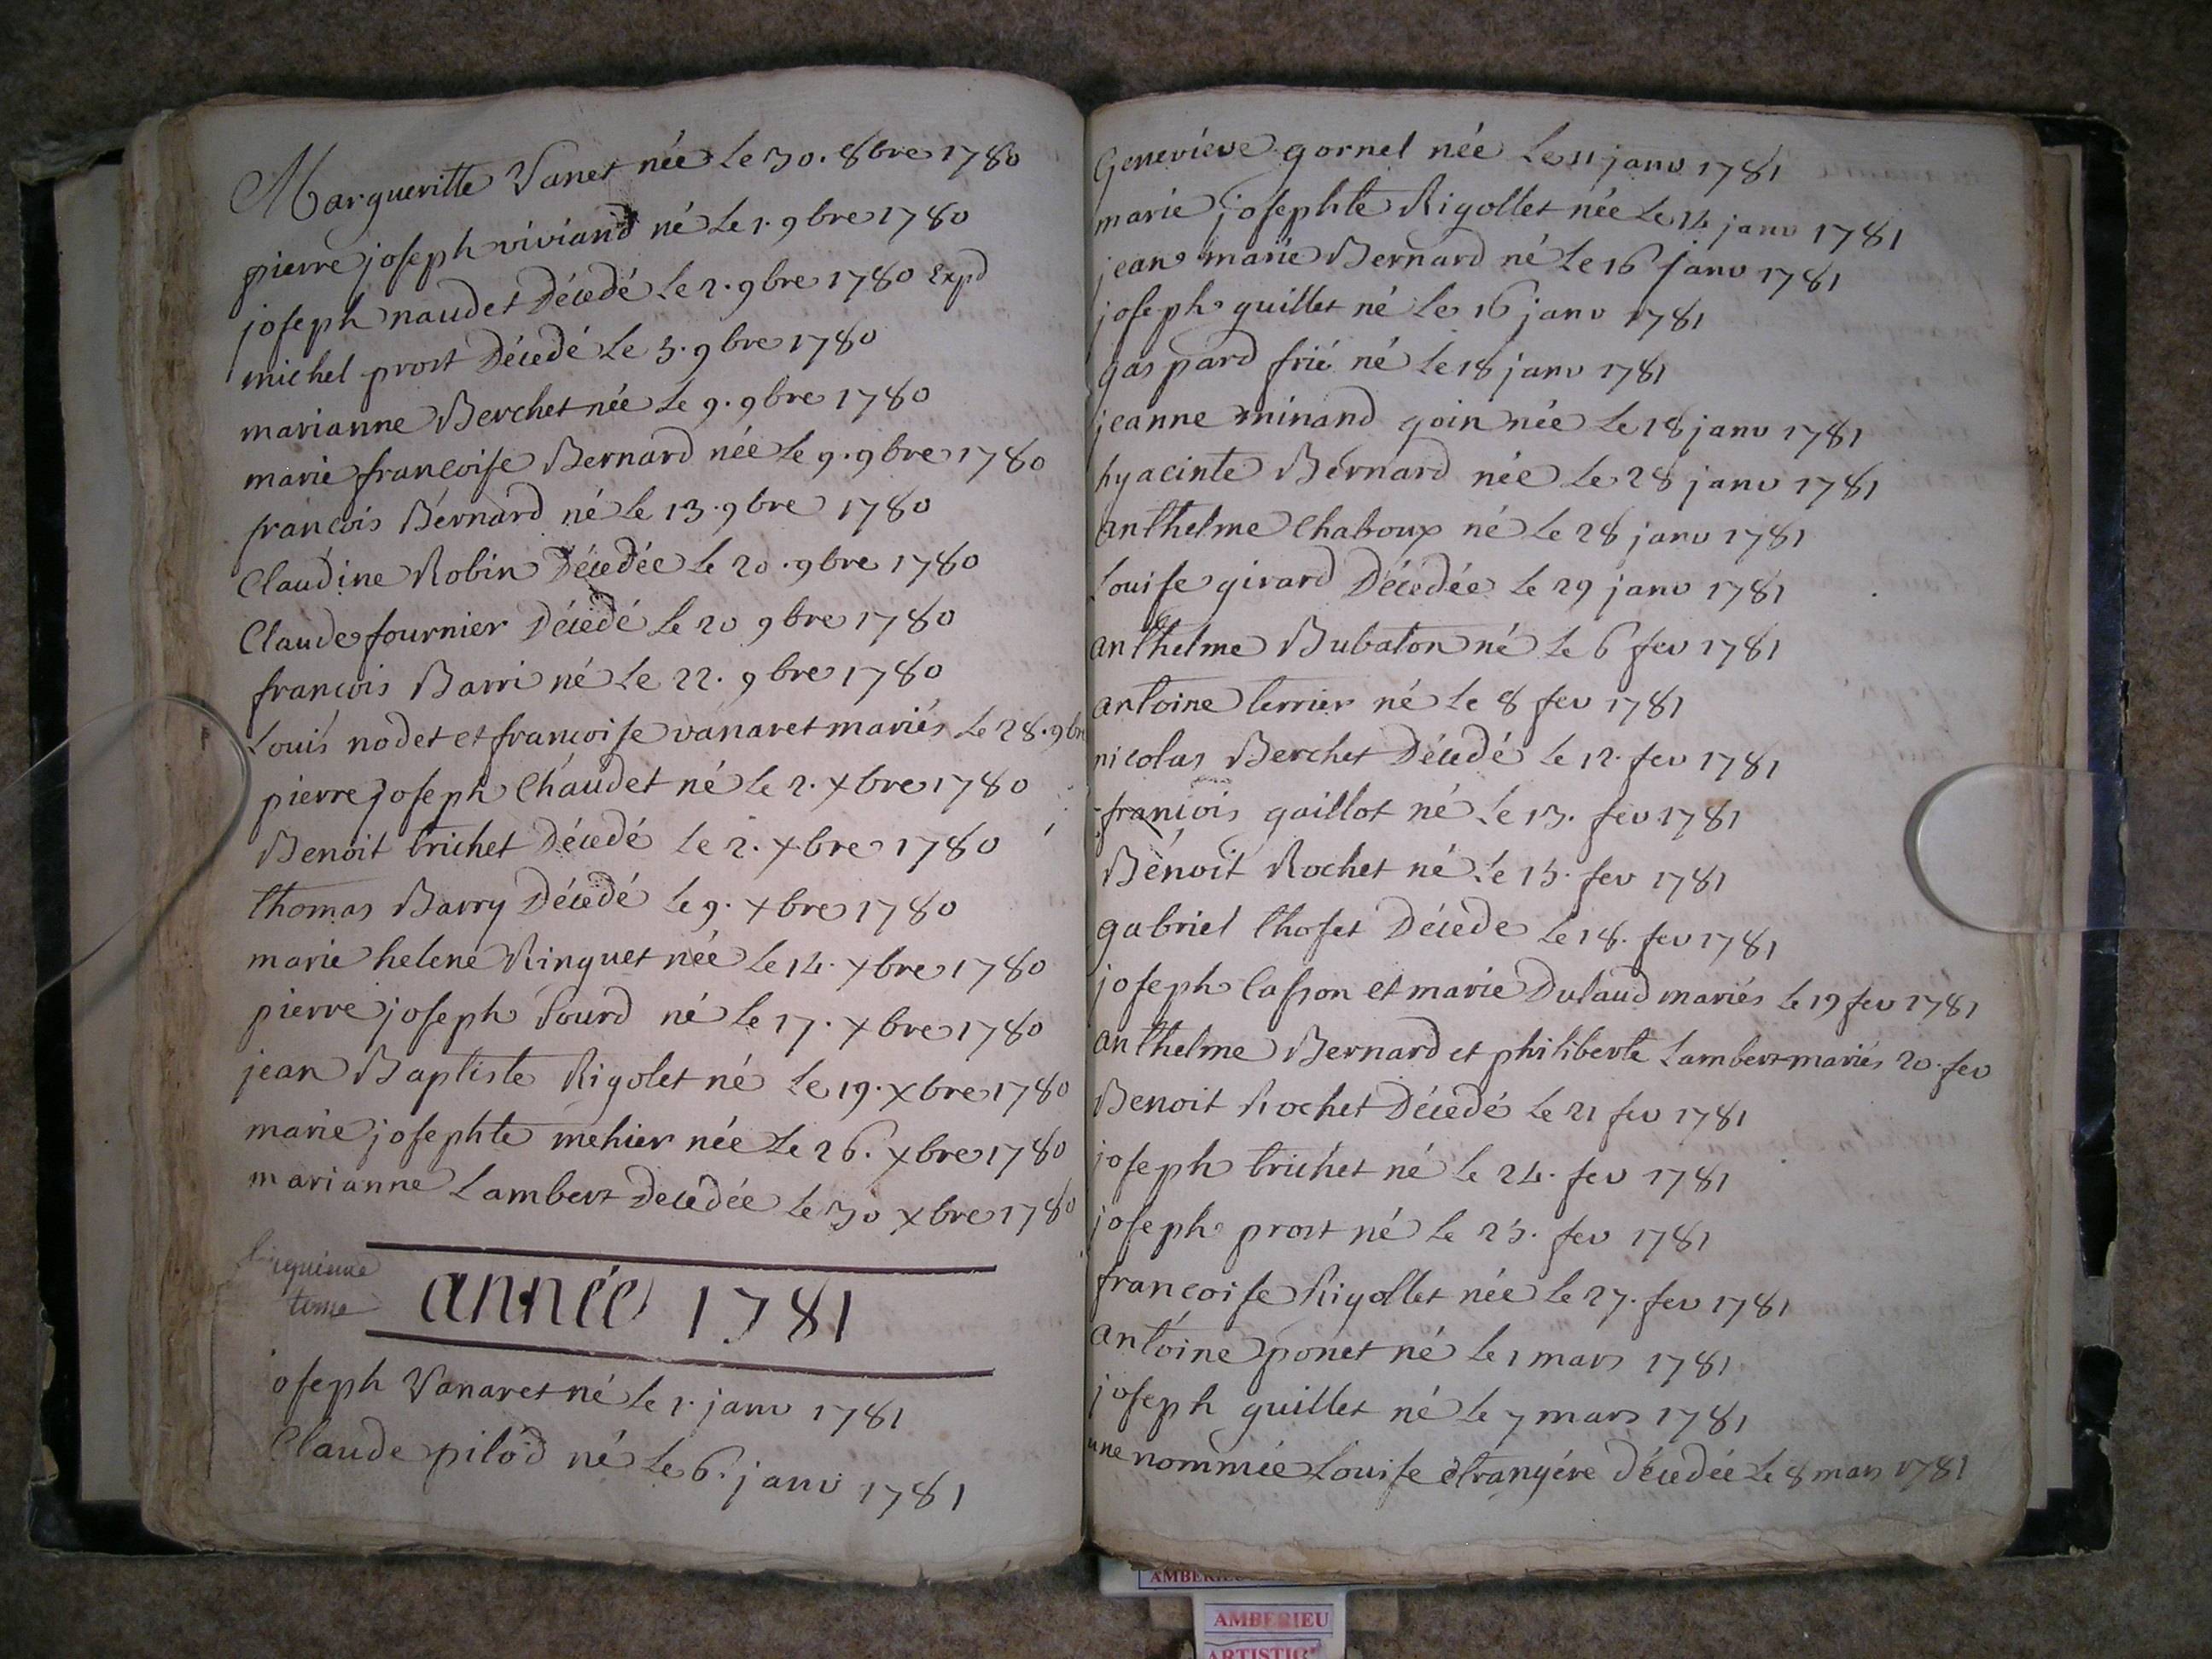 Margueritte Vanet née Le 30. 8bre 1780
pierre joseph viviand né Le 1. 9bre 1780
joseph naudet Décedé Le 2. 9bre 1780 Expd
michel prost Décedé Le 3. 9bre 1780
marianne Berchet née Le 9. 9bre 1780
marie françoise Bernard née Le 9. 9bre 1780
françois Bernard né Le 13. 9bre 1780
Claudine Robin Décedée Le 20. 9bre 1780
Claude fournier Décedé Le 20 9bre 1780
françois Barri né Le 22. 9bre 1780
Louis nodet et françoise vanaret mariés Le 28. 9bre
pierre joseph Chaudet né Le 2. Xbre 1780
Benoit trichet Décedé Le 2. Xbre 1780
thomas Barry Décedé Le 9. Xbre 1780
marie helene Ringuet née Le 14. Xbre 1780
pierre joseph Sourd né Le 17. Xbre 1780
jean Baptiste Rigolet né Le 19. Xbre 1780
marie josephte mehier née Le 26. Xbre 1780
marianne Lambert Decedée Le 30 Xbre 1780
tome
année 1781
joseph Vanaret né Le 1. janv 1781
Claude pilod né Le 6. janv 1781
Genevieve gornel née Le 11 janv 1781
marie josephte Rigollet née Le 14 janv 1781
jean marie Bernard né Le 16 janv 1781
joseph guillet né Le 16 janv 1781
gaspard frié né Le 18 janv 1781
jeanne minand goin née Le 18 janv 1781
hyacinte Bernard née Le 28 janv 1781
anthelme Chaboux né Le 28 janv 1781
Louise girard Décedée Le 29 janv 1781
anthelme Bubaton né Le 6 fev 1781
antoine terrier né Le 8 fev 1781
nicolas Berchet Décedé Le 12. fev 1781
françois gaillot né Le 13. fev 1781
Benoit Rochet né Le 15. fev 1781
gabriel thoset Décede Le 18. fev 1781
joseph Casson et marie Dulaud mariés Le 19 fev 1781
anthelme Bernard et philiberte Lambert mariés 20. fev
Benoit Rochet Décedé Le 21 fev 1781
joseph trichet né Le 24. fev 1781
joseph prost né Le 25. fev 1781
françoise Rigollet née Le 27. fev 1781
antoine ponet né Le 1 mars 1781
joseph guillet né Le 7 mars 1781
une nommée Louise étrangére décedée Le 8 mars 1781
AMBERIEU
AMBERIEU